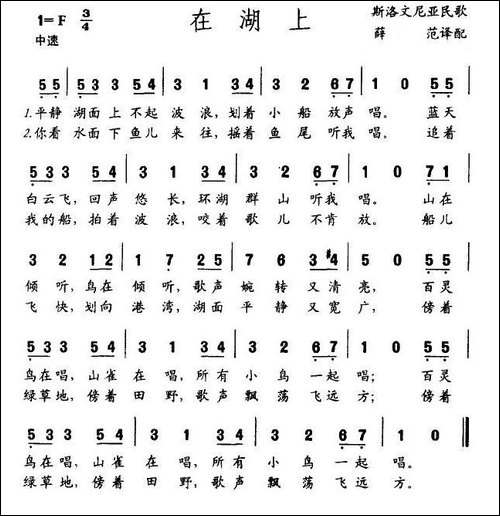 在湖上
1=F 3/4
中速
斯洛文尼亚民歌
薛 范译配
5 5 | 5 3 3 5 4 | 3 1 3 4 | 3 2 6 7 | 1 0 5 5 |
1.平静 湖面 上 不起 波 浪,划着 小 船 放声 唱。 蓝天
2.你看 水面 下 鱼儿 来 往,摇着 鱼 尾 听我 唱。 追着
5 3 3 5 4 | 3 1 3 4 | 3 2 6 7 | 1 0 7 1 |
白云飞,回声 悠 长,环湖 群 山 听我 唱。 山在
我的船,拍着 波 浪,咬着 歌 儿 不肯 放。 船儿
3 2 1 2 | 1 7 2 5 | 7 6 3 #4 | 5 0 5 5 |
倾 听,鸟在 倾 听,歌声 婉 转 又清 亮, 百灵
飞 快,划向 港 湾,湖面 平 静 又宽 广, 傍着
5 3 3 5 4 | 3 1 3 4 | 3 2 6 7 | 1 0 5 5 |
鸟在唱,山雀 在 唱,所有 小 鸟 一起 唱; 百灵
绿草地,傍着 田 野,歌声 飘 荡 飞远 方; 傍着
5 3 3 5 4 | 3 1 3 4 | 3 2 6 7 | 1 0 ‖
鸟在唱,山雀 在 唱,所有 小 鸟 一起 唱。
绿草地,傍着 田 野,歌声 飘 荡 飞远 方。